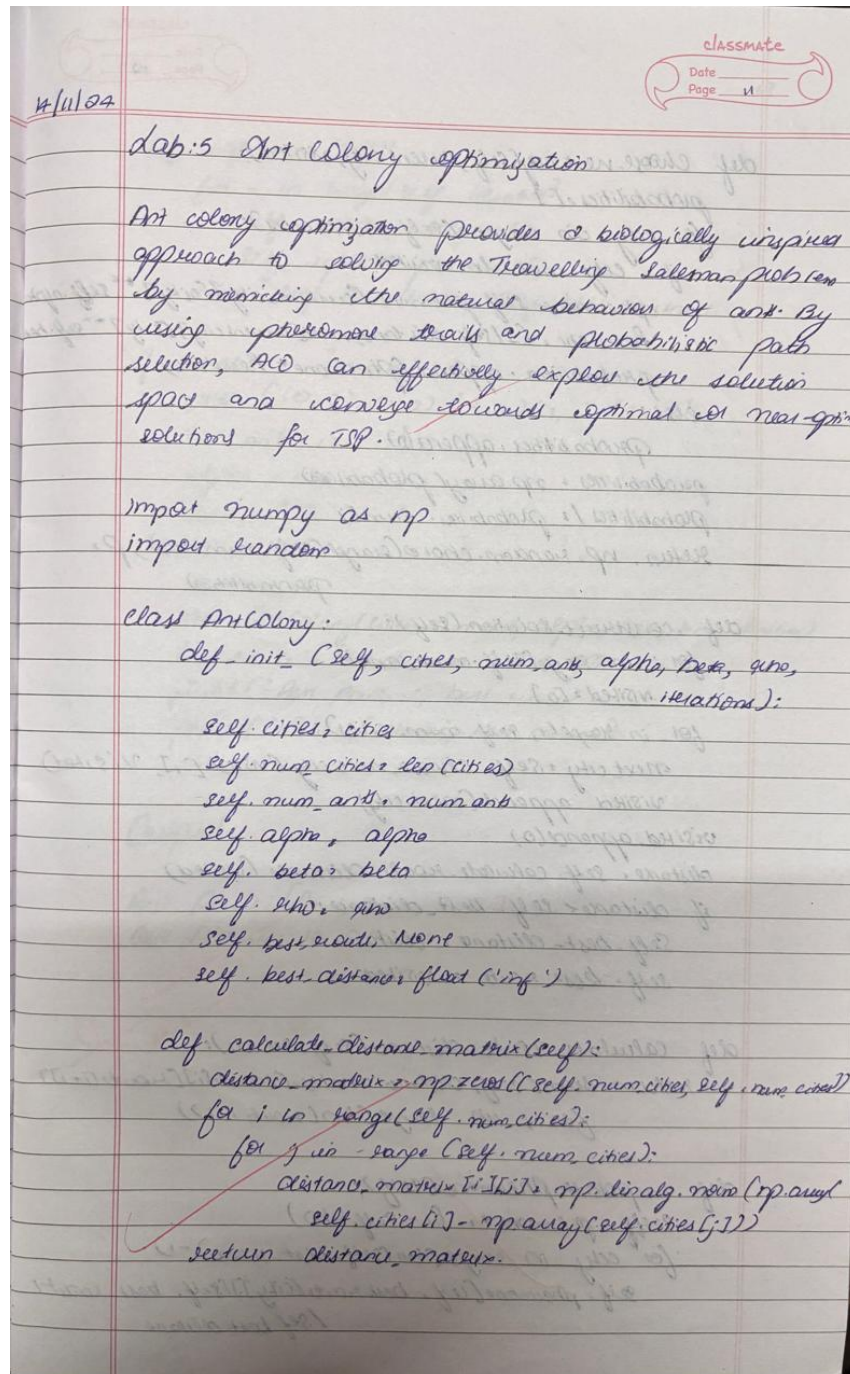 classmate
Date
Page 11
14/11/24
Lab:5 Ant Colony optimization
Ant colony optimization provides a biologically inspired
approach to solving the Travelling Salesman problem
by mimicking the natural behavior of ants. By
using pheromone trails and probabilistic path
selection, ACO can effectively explore the solution
space and converge towards optimal or near-optim
solutions for TSP.
import numpy as np
import random
class AntColony:
def _init_ (self, cities, num_ants, alpha, beta, rho,
iterations):
self.cities = cities
self.num_cities = len(cities)
self.num_ants = num ants
self.alpha = alpha
self.beta = beta
self.rho = rho
self.best_route = None
self.best_distance = float('inf')
def calculate_distance_matrix(self):
distance_matrix = np.zeros((self.num_cities, self.num_cities))
for i in range(self.num_cities):
for j in range (self.num_cities):
distance_matrix [i][j] = np.linalg.norm (np.array(
self.cities[i] - np.array(self.cities[j]))
return distance_matrix.